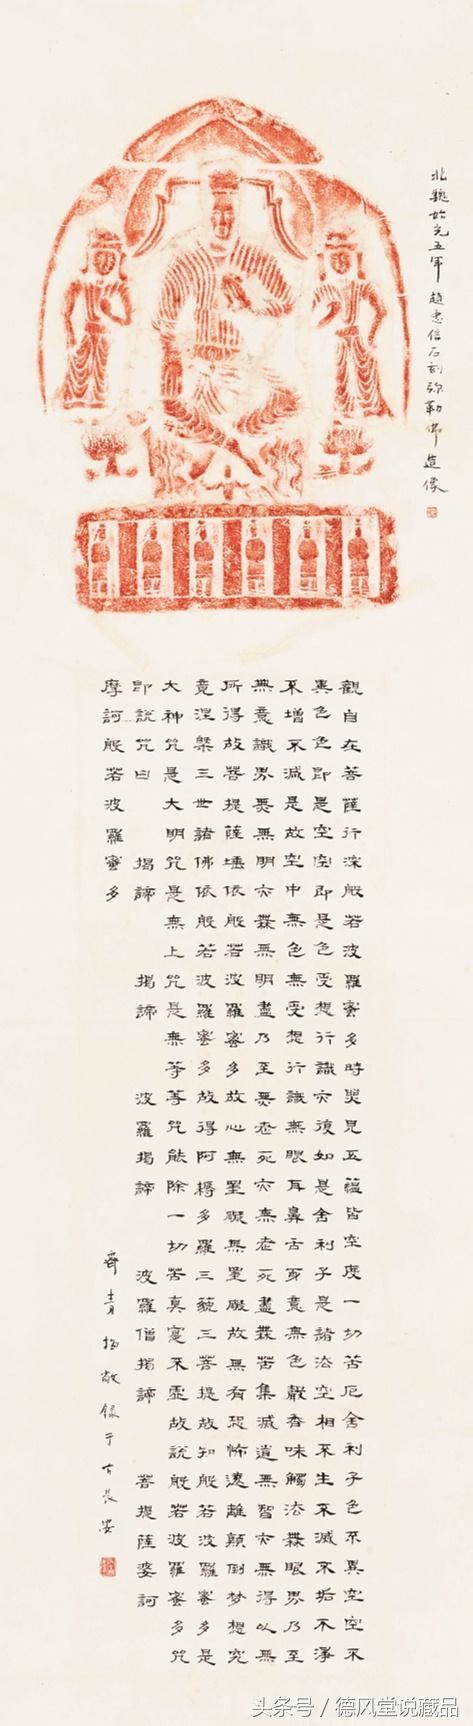 北魏始光五年 趙忠信石刻弥勒佛造像
觀自在菩薩行深般若波羅蜜多時照見五蘊皆空度一切苦厄舍利子色不異空空不
異色色即是空空即是色受想行識亦復如是舍利子是諸法空相不生不滅不垢不淨
不增不減是故空中無色無受想行識無眼耳鼻舌身意無色聲香味觸法無眼界乃至
無意識界無無明亦無無明盡乃至無老死亦無老死盡無苦集滅道無智亦無得以無
所得故菩提薩埵依般若波羅蜜多故心無罣礙無罣礙故無有恐怖遠離顛倒梦想究
竟涅槃三世諸佛依般若波羅蜜多故得阿耨多羅三藐三菩提故知般若波羅蜜多是
大神咒是大明咒是無上咒是無等等咒能除一切苦真實不虛故說般若波羅蜜多咒
即說咒曰 揭諦 揭諦 波羅揭諦 波羅僧揭諦 菩提薩婆訶
摩訶般若波羅蜜多
齊青楊敬録于古長安
头条号/德风堂说藏品